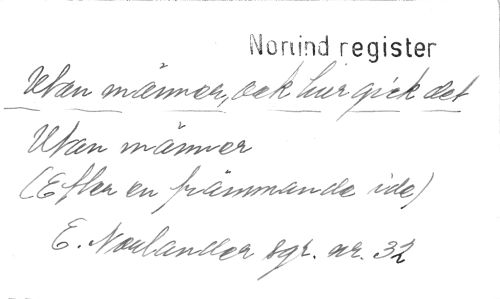 Norlind register
Utan männer, ock hur gick det
Utan männer
(Efter en främmande ide)
E. Norlander sgr. nr. 32